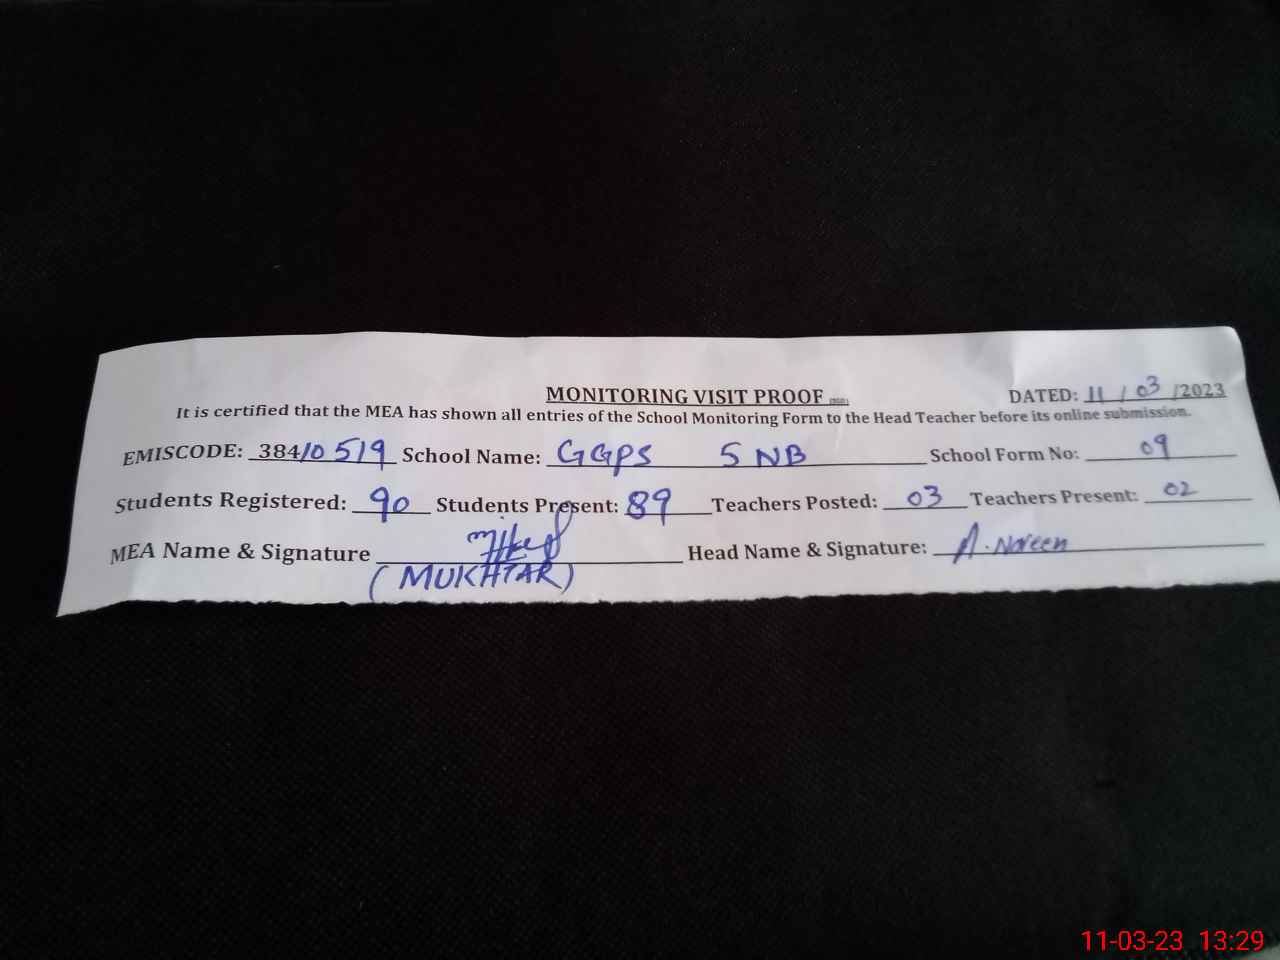 MONITORING VISIT PROOF
DATED: 11/03/2023
It is certified that the MEA has shown all entries of the School Monitoring Form to the Head Teacher before its online submission.
EMISCODE: 38410519 School Name: GGPS 5 NB School Form No: 09
Students Registered: 90 Students Present: 89 Teachers Posted: 03 Teachers Present: 02
MEA Name & Signature Head Name & Signature: A. Noreen
(MUKHTAR)
11-03-23 13:29